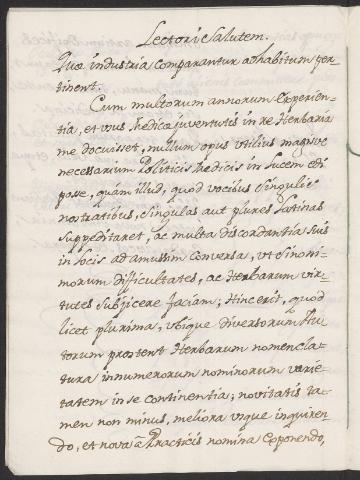 Lectori Salutem.
Quæ industria comparantur ad habitum per-
tinent.
Cum multorum annorum experien-
tia, et usus Medicæ juventutis in re Herbaria
me docuisset, nullum opus utilius magisve
necessarium Politicis Medicis in lucem edi
posse, quàm illud, quod vocibus singulis
nostratibus, singulas aut plures latinas
suppeditaret, ac multa discordantia suis
in locis ad amussim conversa, ut sinoni-
morum difficultates, ac Herbarum vir-
tutes subjicere faciam; Hinc erit, quod
licet plurima, ubique diversorum Au-
torum prostent Herbarum nomencla-
tura innumerorum nominorum varie-
tatem in se continentia; novitatis ta-
men non minus, meliora usque inquiren-
do, et nova à Practicis nomina exponendo,